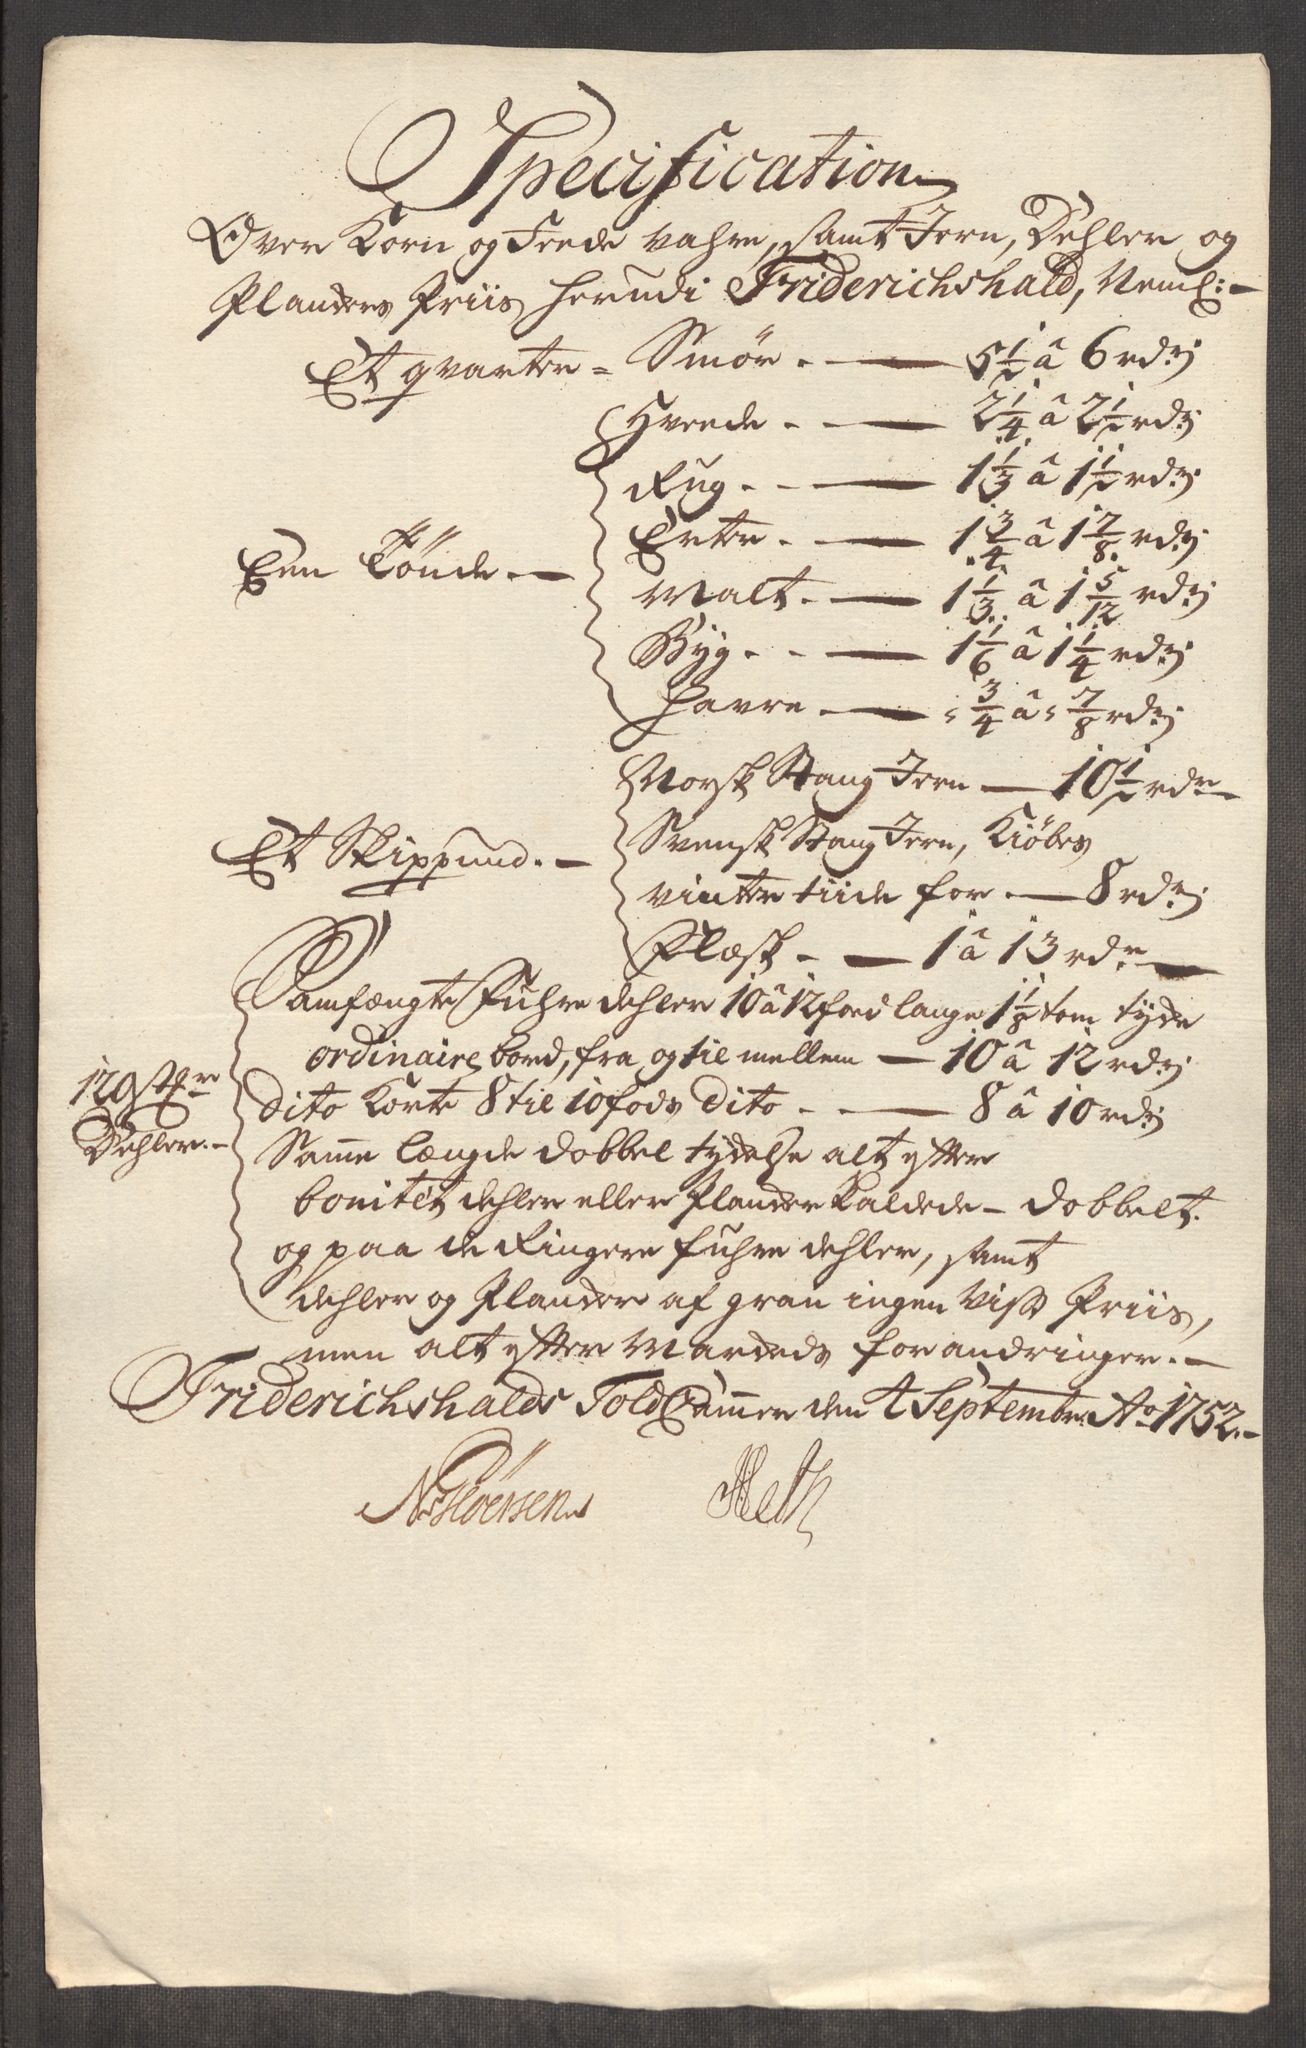 Specification
Over Korn og Feede vahre, samt Jern, Dehler og
Plankers Priis herudi Friderichshald, Neml:
Et qvarter = Smør. — 5 1/2 â 6 rdr
Hvede. — 2 1/4 â 2 1/2 rdr
Rug. — 1 1/3 â 1 1/2 rdr
Erter. — 1 3/4 â 1 7/8 rdr
Een Tönde. —
Malt. — 1 1/3 â 1 5/12 rdr
Byg. — 1 1/6 â 1 1/4 rdr
Havre — 3/4 â 7/8 rdr
Norsk Stang Jern — 10 1/2 rdr
Svensk Stang Jern, Kiöbes
Et Skippund. —
vinter tiide for — 8 rdr
Flæsk — 1 â 13 rdr
Samfængte Fuhre dehler 10 â 12 foed lange 1 1/8 tom tyde
ordinaire bord, fra og til mellem — 10 â 12 rdr
120 Stkr
Dehler. —
dito Korte 8 til 10 fods dito — 8 â 10 rdr
Samme længde dobbel tydelse alt efter
bonitét dehler eller Planker kaldede — dobbelt.
og paa de Ringere fuhre dehler, samt
dehler og Planker af gran ingen Vist Priis,
men alt efter Markeds forandringer. —
Friderichshalds Told Cammer den 1 Septembr: Ao 1752. —